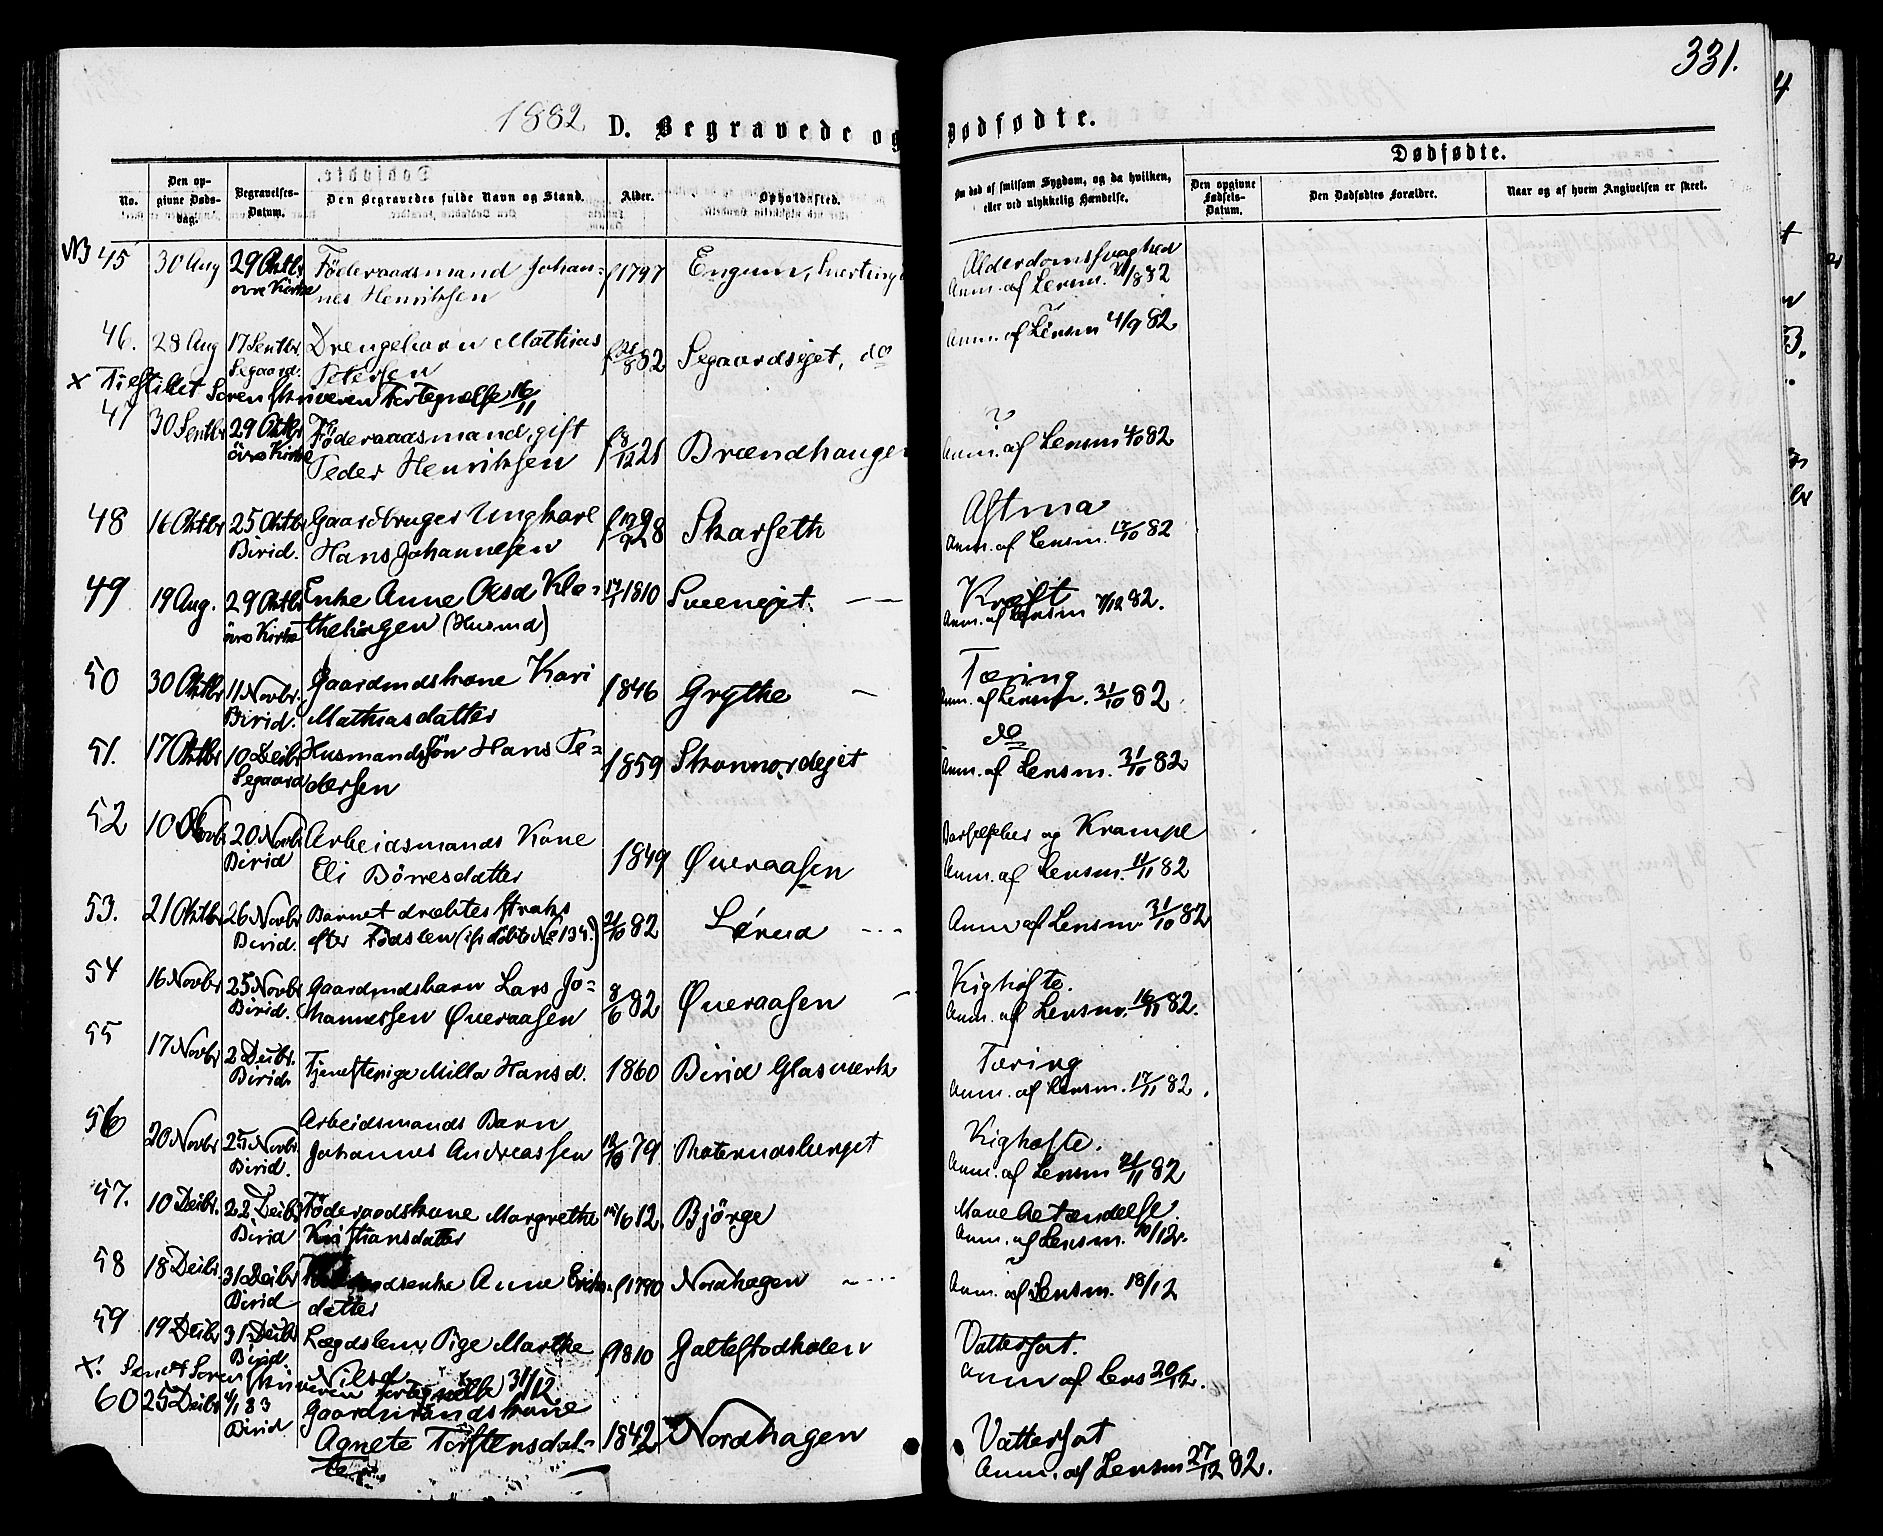 331.
1882 D. Begravede og Dødfødte.
No.
Den opgivne Døds-dag.
Begravelses-Datum.
Den Begravedes fulde Navn og Stand.
Alder.
Opholdssted.
Om død af smitsom Sygdom, og da hvilken, eller ved ulykkelig Hændelse.
Dødfødte.
Den opgivne Fødsels-Datum.
Den Dødfødtes Forældre.
Naar og af hvem Angivelsen er skeet.
NB 45 30 Aug 29 Oktbr Föderaadsmand Johan= f 1797 Engum, Alderdomssvaghed
øvre Kirke nes Henriksen Anm. af Lensm.
46. 28 Aug 17 Septbr Drengebarn Mathias 82 Segaardseget, do ?
Segaard. Petersen Anm. af Lensm 4/9 82
x Tilstillet Sorenskriveren Fortegnelse 16/11
47 30 Septbr 29 Oktbr Føderaadsmand, gift f 8/12 21 Brændhaugen ?
övre Kirke Peder Henriksen Anm. af Lensm 4/10 82
48 16 Oktbr 25 Oktbr Gaardbruger Ungkarl 28 Skarseth Astma
Birid. Hans Johannesen Anm. af Lensm. 17/10 82
49 19 Aug. 29 Oktbr Enke Anne Olsd Klo= 1810 Sveeneget. Kræft
övre Kirke (Husmd) Anm. af Lensm 82.
50 30 Oktbr 11 Novbr. Gaardmdskone Kari f 1846 Grythe Tæring
Birid. Mathiasdatter Anm. af Lensm. 31/10 82
51. 17 Oktbr 10 Decbr Husmandssön Hans Pe= 1859 do
Segaard dersen Anm. af Lensm. 31/10 82
52 10 Novbr 20 Novbr Arbeidsmands Kone 1849 Øveraasen Barselfeber og Krampe
Birid Eli Börresdatter Anm. af Lensm. 11/11 82
53. 21 Oktbr 26 Novbr Barnet dræbtes straks 21/10 82 Anm af Lensm 31/10 82
Birid. efter Fødslen (cfr döbte No 134.)
54 16 Novbr 25 Novbr Gaardmdsbarn Lars Jo= 8/6 82 Øveraasen Kighoste.
Birid. hannessen Øveraasen Anm. af Lensm. 16/11 82.
55 17 Novbr 2 Decbr. Tjenestepige Milla Hansd. 1860 Birid Glasværk Tæring
Birid. Anm. af Lensm. 17/11 82.
56 20 Novbr 25 Novbr. Arbeidsmands Barn 79 Kighoste.
Birid. Johannes Andreassen Anm. af Lensm 21/11 82
57. 10 Decbr. 22 Decbr Föderaadskone Margrethe 12. Björge Mavebetændelse.
Birid Kristiansdatter Anm. af Lensm. 10/12.
58 18 Decbr. 31 Decbr Anne Eriks- f 1790 Nordhagen
Birid datter Anm. af Lensm. 18/12
59 19 Decbr 31 Decbr Lægdslem Pige Marthe f 1810 Galtestadholen Vattersot.
Birid. Nilsd. Anm af Lens 20/12.
x. Sendt Sorenskriveren Fortegnelse 31/12
60 25 Decbr 4/1 83 Gaardmandskone 1842 Nordhagen Vattersot
Birid Agnete Torstensdat- Anm. af Lensm 27/12 82.
ter